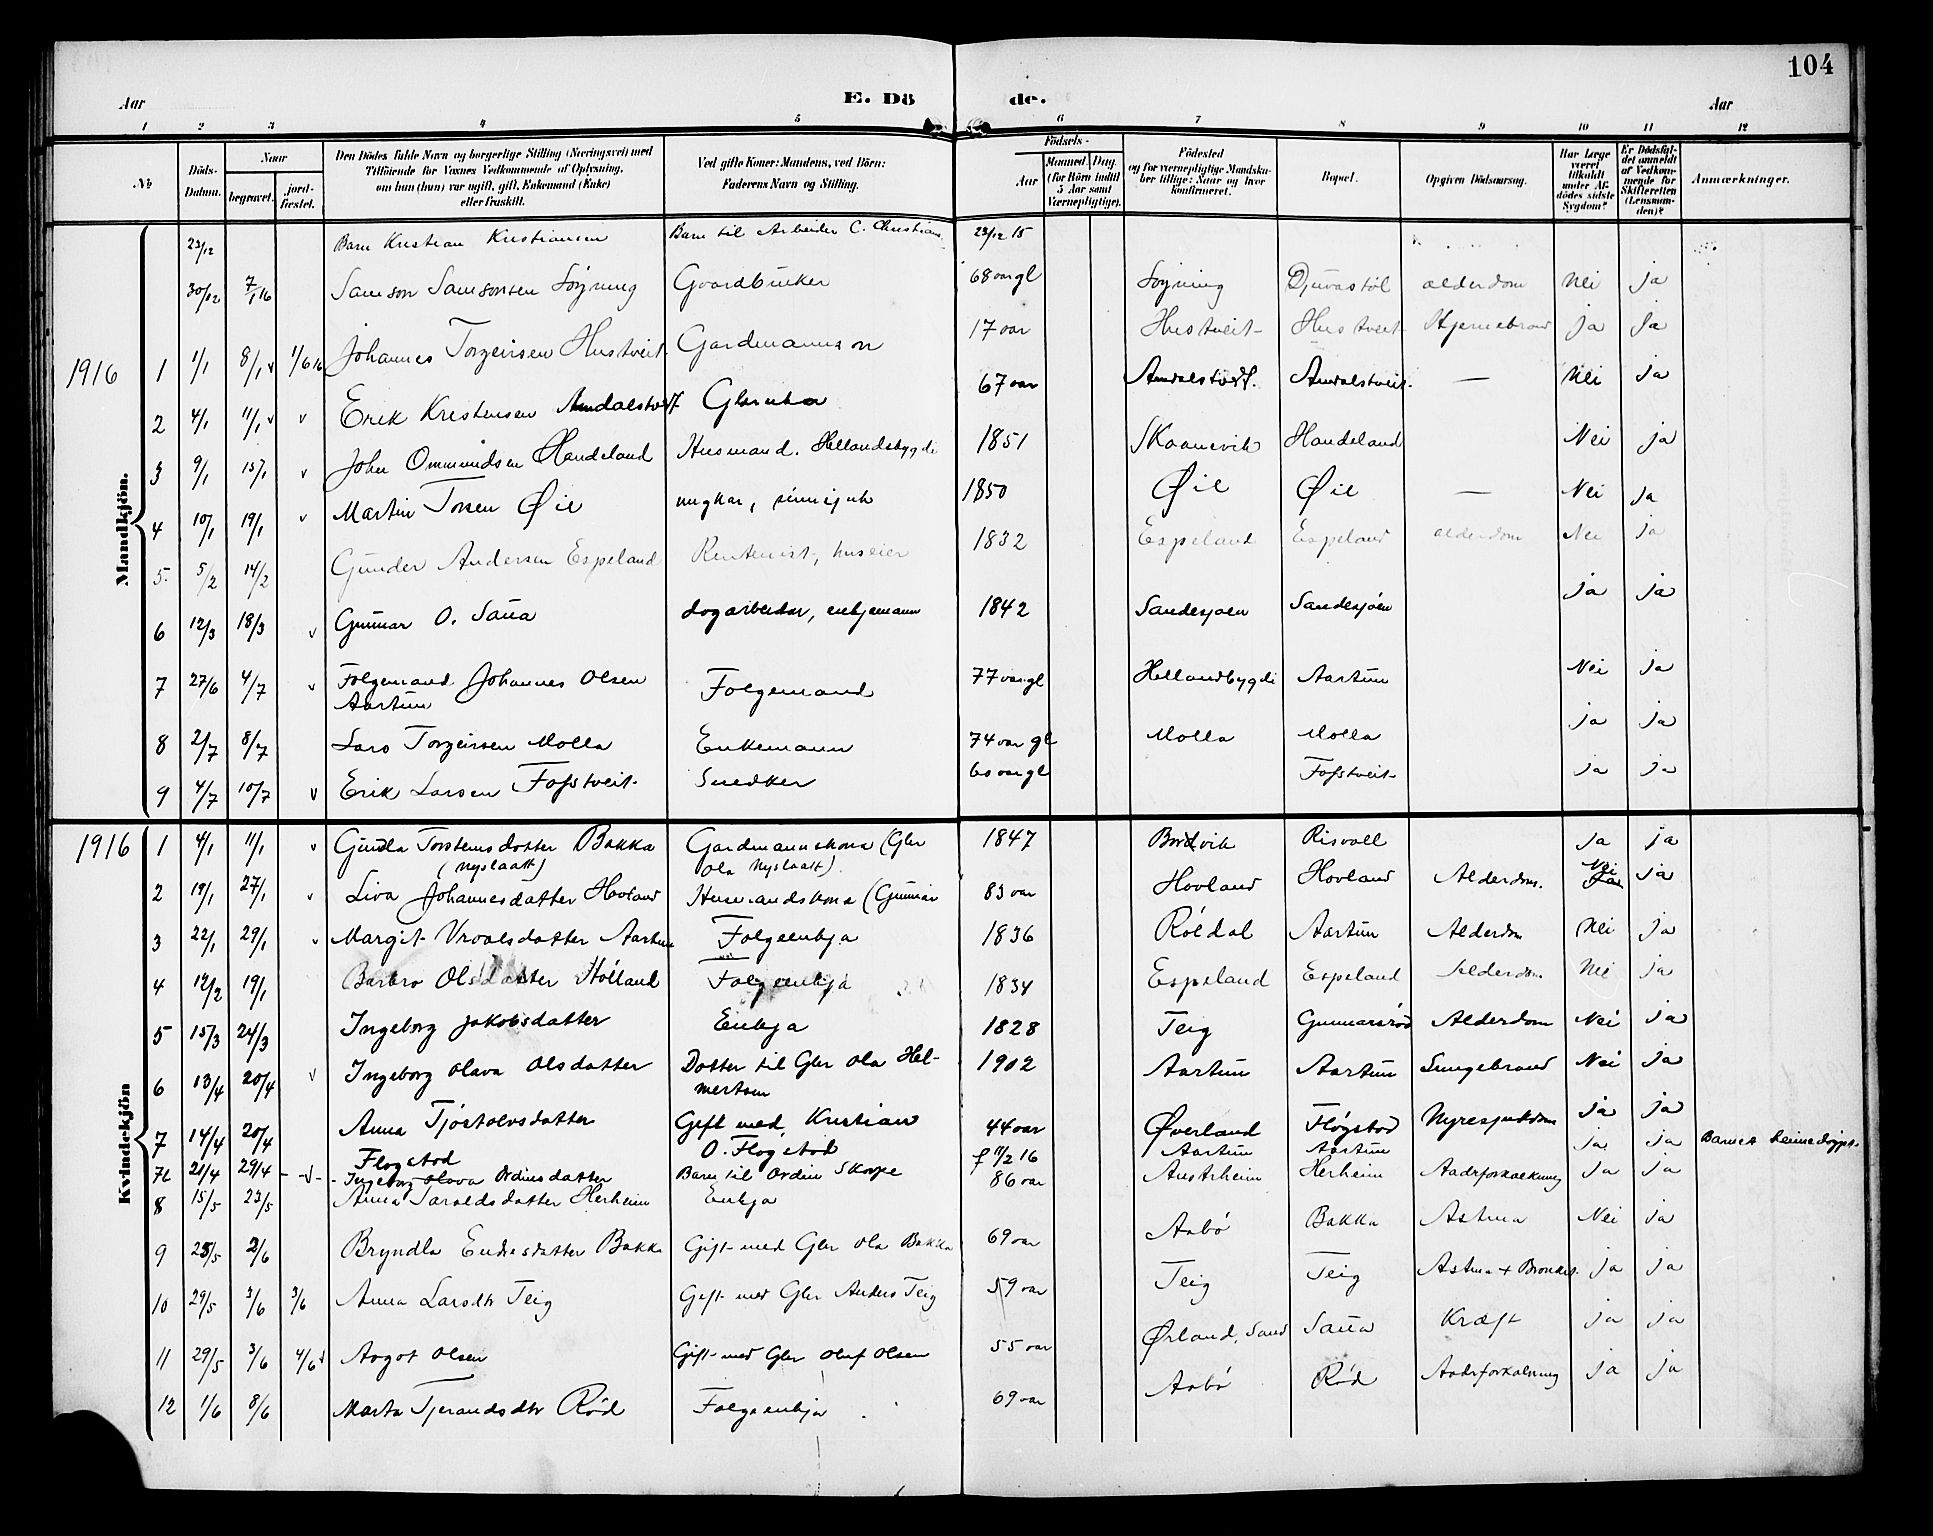 104
Aar E. Dö de. Aar
1 2 3 4 5 6 7 8 9 10 11 12
No Döds-Datum. Naar begravet. jord-fæstet. Den Dödes fulde Navn og borgerlige Stilling (Næringsvei) med Tilföiende for Voxnes Vedkommende af Oplysning, om han (hun) var ugift, gift, Enkemand (Enke) eller fraskilt. Ved gifte Koner: Mandens, ved Börn: Faderens Navn og Stilling. Födsels- Aar Maaned. Dag. (for Börn indtil 5 Aar samt Værnepligtige). Födested og for værnepligtige Mandskaber tillige: Naar og hvor konfirmeret. Bopæl. Opgiven Dödsaarsag. Har Læge været tilkaldt under Afdödes sidste Sygdom? Er Dödsfaldet anmeldt af Vedkommende for Skifteretten (Lensmanden)? Anmærkninger.
Mandkjön.
23/12 Barn Kristian Kristiansen Barn til Arbeider C. Christians 23/12 15
30/12 7/1 16 Samson Samsonsen Søgning Gaardbruker 68 aar gl Søgning Djuvastøl alderdom Nei ja
1916 1 1/1 8/1 v 1/6 16 Johannes Torgeirsen Hustveit Gardmannsson 17 aar Hustveit Hustveit Hjernebrand ja ja
2 4/1 11/1 v v Erik Kristensen Amdalstveit 67 aar Amdalstveit. Amdalstveit. — Nei ja
3 9/1 15/1 v John Ommundsen Handeland Husmand. Hellandsbygdi 1851 Skaanevik Handeland Nei ja
4 10/1 19/1 v Martin Torsen Øie ungkar, sinnsjuk 1850 Øie Øie — Nei ja
5 5/2 14/2 Gunder Andersen Espeland Rentenist, huseier 1832 Espeland Espeland alderdom Nei ja
6 12/3 18/3 v Gunnar O. Saua dagarbeidar, enkjemann 1842 Sandesjøen Sandesjøen ja ja
7 27/6 4/7 v Folgemand Johannes Olsen Aartun Folgemand 77 aar gl Hellandbygdi Aartun Nei ja
8 2/7 8/7 Lars Torgeirsen Molla Enkemann 74 aar gl Molla Molla ja ja
9 4/7 10/7 v Erik Larsen Fosstveit Snedker 60 aar gl Fosstveit ja ja
Kvindekjön
1916 1 4/1 11/1 v Gunla Torstensdotter Bakka (Nyslaatt) Gardmannskona (Gbr Ola Nyslaatt). 1847 Bordvik Risvoll ja ja
2 19/1 27/1 v Liva Johannesdatter Hovland Husmandskona (Gunnar 83 aar Hovland Hovland Alderdom. Nei ja
3 22/1 29/1 v Margit Vroalsdatter Aartun Folgeenkja 1836 Røldal Aartun Alderdom Nei ja
4 12/2 19/1 Barbro Olsdatter Hølland Folgeenkja 1834 Espeland Espeland Alderdom Nei ja
5 15/3 24/3 Ingeborg Jakobsdatter Enkja 1828 Teig Gunnarsrød Alderdom Nei ja
6 13/4 20/4 v Ingeborg Olava Olsdatter Dotter til Gbr Ola Helmertsen 1902 Aartun Aartun Lungebrand Nei ja
7 14/4 20/4 Anna Tjøstolvsdatter Flogstod Gift med Kristian O. Flogstod 44 aar Øverland Fløgstod Nyresjukdom ja ja
7b 21/4 29/4 - v - Ingeborg Olava Ordinsdatter Barn til Ordin Skorpe f 11/2 16 Aartun Aartun ja ja Barnet heimedøypt.
8 15/5 23/5 Anna Taraldsdatter Herheim Enkja 86 aar Austrheim Herheim Aadrforkalkning ja ja
9 25/5 2/6 Bryndla Endresdatter Bakka Gift med Gbr Ola Bakka 69 aar Aabø Bakka Astma Nei ja
10 29/5 3/6 3/6 Anna Larsdtr Teig Gift med Gbr Anders Teig 59 aar Teig Teig Astma + Bronkit. ja ja
11 29/5 3/6 4/6 v Aagot Olsen Gift med Gbr Oluf Olsen 55 aar Ørland, Sand Saua Kræft ja ja
12 1/6 8/6 Marta Tjerandsdtr Rød Folgeenkja 69 aar Aabø Rød Aadrforkalkning ja ja